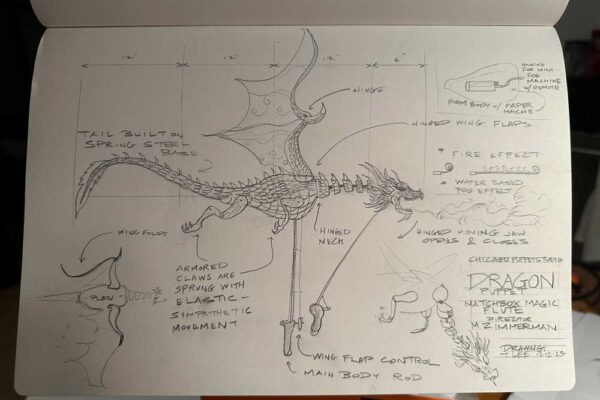 12"
12"
12"
6"
HINGE
HOUSING
FOR MINI
FOG
MACHINE
W/ REMOTE
FOAM BODY - / PAPER
MACHE
HINGED WING FLAPS
TAIL BUILT ON
SPRING STEEL
BASE
* FIRE EFFECT
* WATER BASED
FOG EFFECT
WING FOLDS
PLAN
HINGED
NECK
HINGED MOVING JAW
OPENS & CLOSES
ARMORED
CLAWS ARE
SPRUNG WITH
ELASTIC -
SYMPATHETIC
MOVEMENT
CHICAGO PUPPET STUDIO
DRAGON
PUPPET
MATCHBOX MAGIC
FLUTE
DIRECTOR
M ZIMMERMAN
DRAWING:
T. LEE 12.12.23
WING FLAP CONTROL
MAIN BODY ROD